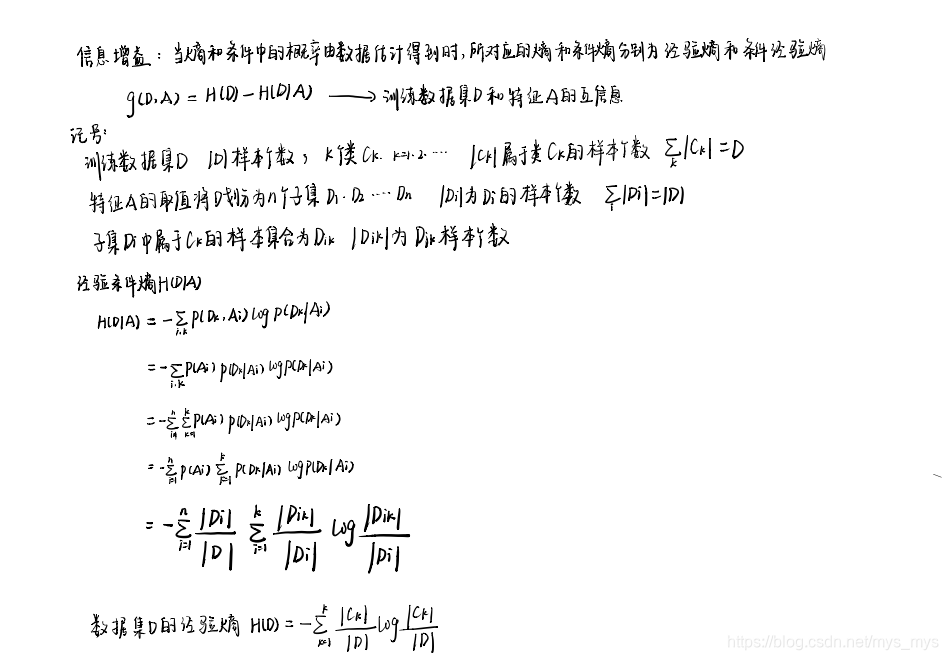 信息增益：当熵和条件中的概率由数据估计得到时，所对应的熵和条件熵分别为经验熵和条件经验熵
g(D,A) = H(D) - H(D|A) ⟶ 训练数据集D和特征A的互信息
记号：
训练数据集D |D|样本个数； K个类Ck. k=1.2.… |Ck|属于类Ck的样本个数 ∑k|Ck|=D
特征A的取值将D划分为n个子集D1·D2…Dn |Di|为Di的样本个数 ∑i|Di|=|D|
子集Di中属于Ck的样本集合为Dik |Dik|为Dik样本个数
经验条件熵H(D|A)
H(D|A) = -∑i.k P(Dk,Ai) log P(Dk|Ai)
= -∑i.k P(Ai) P(Dk|Ai) log P(Dk|Ai)
= -∑i=1^n ∑k=1^k P(Ai) P(Dk|Ai) log P(Dk|Ai)
= -∑i=1^n P(Ai) ∑i=1^k P(Dk|Ai) log P(Dk|Ai)
= -∑i=1^n |Di|/|D| ∑i=1^k |Dik|/|Di| log |Dik|/|Di|
数据集D的经验熵 H(D) = -∑k=1^k |Ck|/|D| log |Ck|/|D|
https://blog.csdn.net/mys_mys